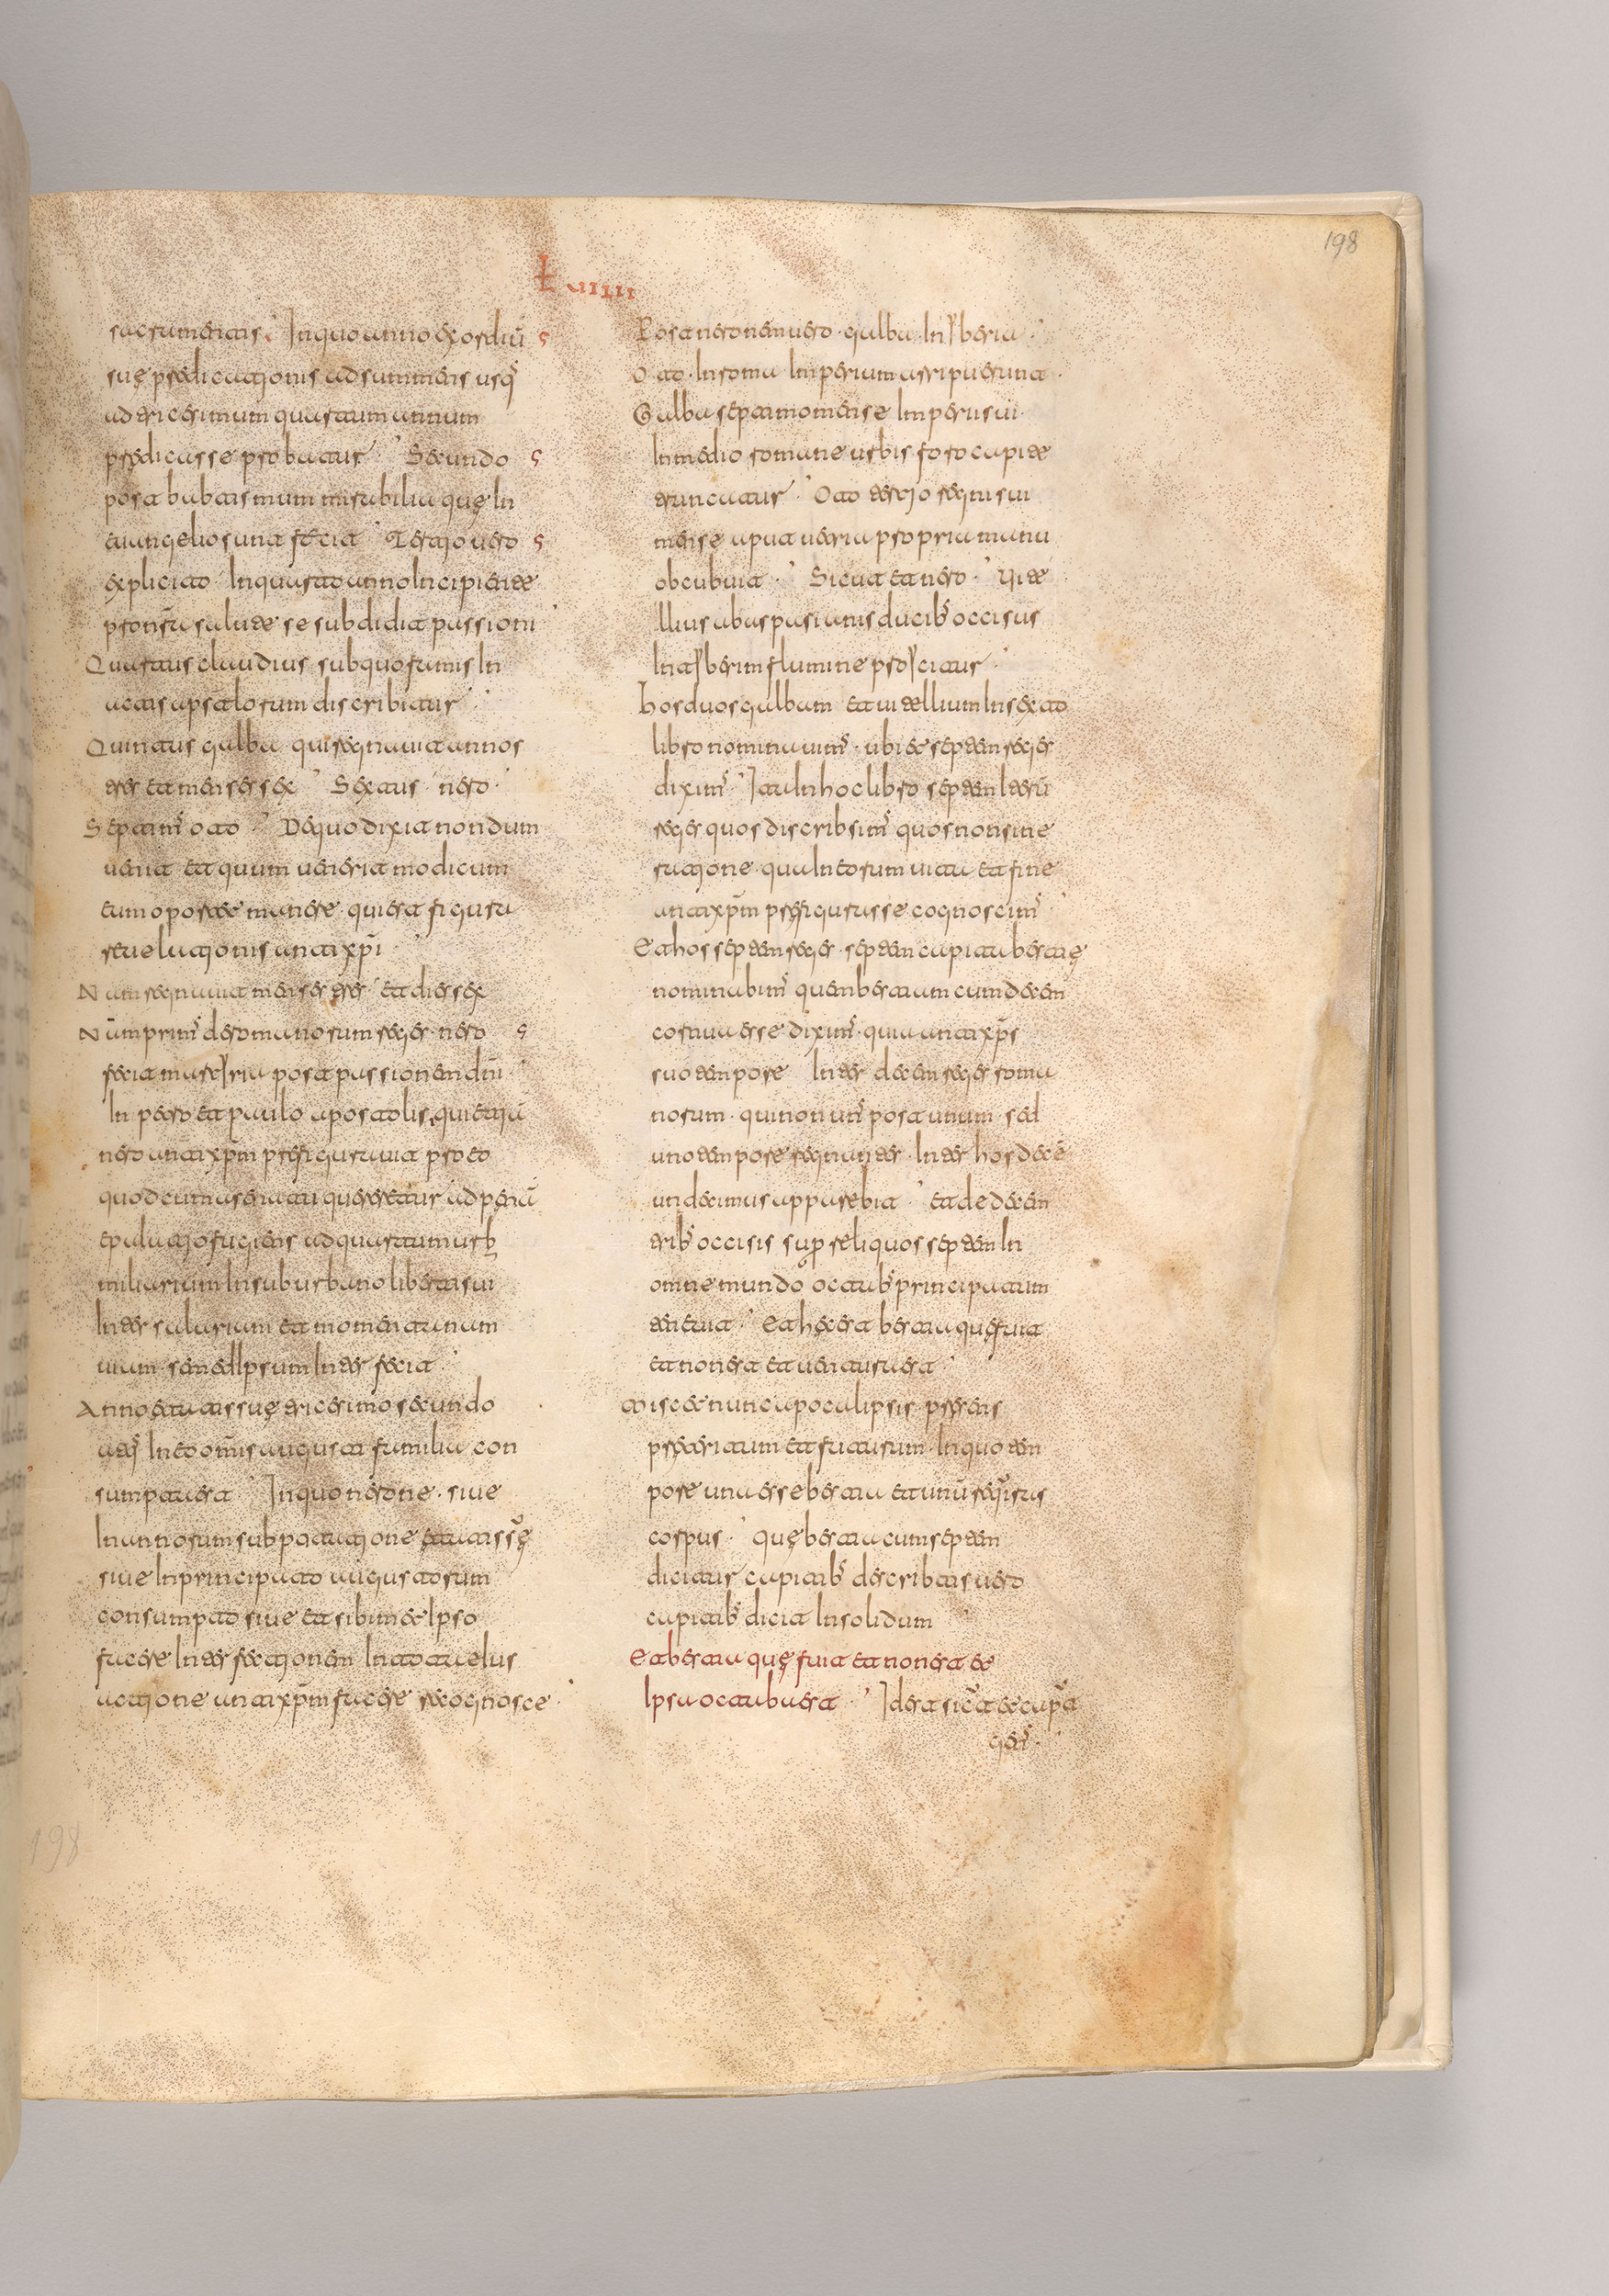 198
Ł uiiii
sacramentis. In quo anno exordiū
suę predicationis adsumens usq;
ad tricesimum quartum annum
predicasse probatur. Secundo
post babtismum mirabilia quę In
euangelio sunt fecit. Tertio uero
explicito. In quarto anno Incipiente
pro nr̄a salute se subdidit passioni
Quartus claudius sub quo famis In
actis apstlorum discribitur.
Quintus galba qui regnauit annos
tres et menses sex. Sextus nero.
Septim' oto. De quo dixit nondum
uenit et quum uenerit modicum
eum oportet manere. qui est figura
reuelationis antixp̄i.
Nam regnauit menses tres et dies sex
Nam prim' de romanorum reges nero
fecit martyria post passionem dn̄i
In petro et paulo apostolis. qui etiā
nero antixp̄m prefigurauit pro eo
quod cum a senatu quereretur ad penā
e palatio fugiens ad quartum urb
miliarium In suburbano liberti sui
Inter salariam et momentanam
uiam semedIpsum Interfecit.
Anno etatis suę tricesimo secundo
atq; In eo omis augusta familia con
sumpta est. In quo nerone. siue
In annorum subputatione etatis suę
siue In principato augustorum
consumpto siue et sibimet Ipso
facere Interfectionem In tota eIus
actione antixp̄m facere recognosce.
Post neronem uero. galba. In Iberia.
Oto. In roma Imperium arripuerunt.
Galba septimo mense Imperii sui
In medio romane urbis foro capite
truncatur. Oto tertio regni sui
mense aput uetria propria manu
obcubuit. Sicut et nero. Uite
llius a baspasianis ducib' occisus
In tyberim flumine proycitur.
hos duos galbam et uitellium In sexto
libro nominauim'. ubi et septem reges
dixim'. Ita In hoc libro septem Iterū
reges quos discribsim' quos non sine
ratione. qua In eorum uita et fine
antixp̄m prefigurasse cognoscim'
Et hos septem reges. septem capita bestię
nominabim' quem bestiam cum decem
cornua esse dixim'. quia antixp̄s
suo tempore Inter decem reges roma
norum. qui non un' post unum sed
uno tempore regnantes. Inter hos decē
undecimus apparebit. et de decem
trib' occisis sup̱ reliquos septem In
omne mundo octaub' principatum
tenebit. et hec est bestia quę fuit
et non est et uentura est
Miscet nunc apocalipsis presens
preteritum et futurum. In quo tem
pore una esse bestia et unū requirus
corpus. quę bestia cum septem
dicitur capitib' describtis uero
capitib' dicit In solidum
Et bestia quę fuit et non est. et
Ipsa octaba est. Id est sicut et cap̄t
gen'.
198